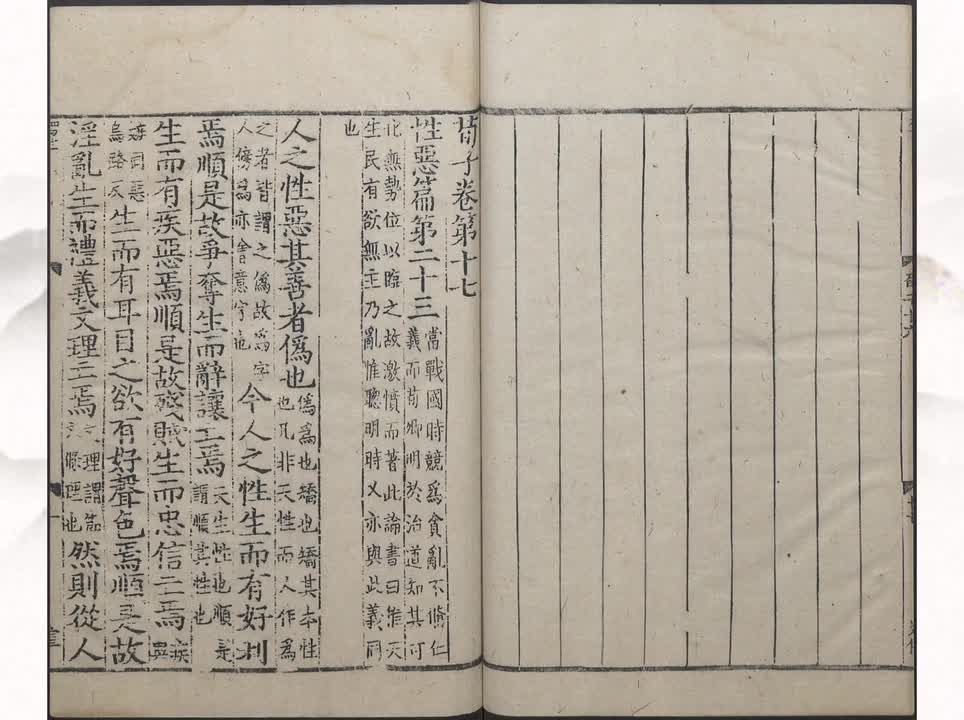 荀子卷第十七
性惡篇第二十三當戰國時競爲貪亂不脩仁義而荀卿明於治道知其可
化無勢位以臨之故激憤而著此論書曰惟天生民有欲無主乃亂惟聰明時乂亦與此義同
也
人之性惡其善者僞也僞爲也矯也矯其本性也凡非天性而人作爲
之者皆謂之僞故爲字人傍爲亦會意字也今人之性生而有好利
焉順是故爭奪生而辭讓亡焉天生性也順是謂順其性也
生而有疾惡焉順是故殘賊生而忠信亡焉疾與
嫉同惡烏路反生而有耳目之欲有好聲色焉順是故
淫亂生而禮義文理亡焉文理謂節文條理也然則從人